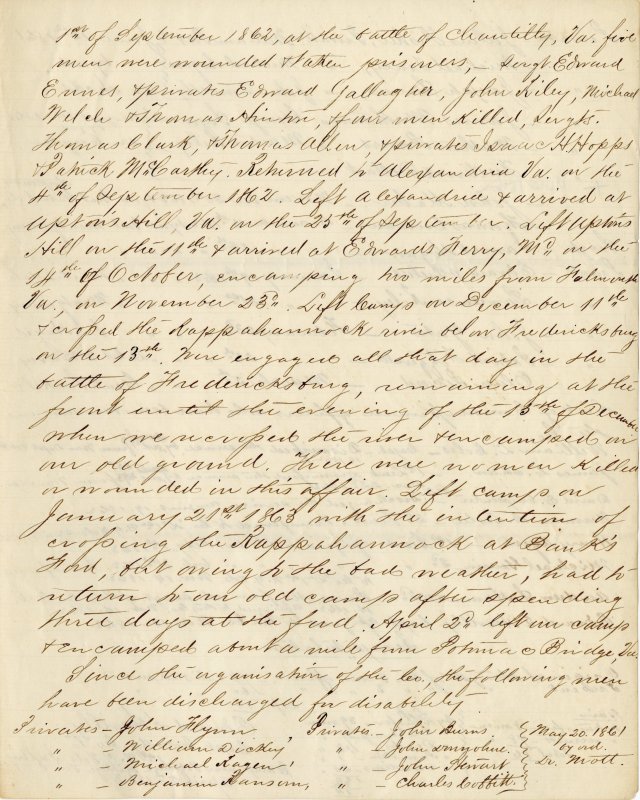 1st of September 1862, at the battle of Chantilly, Va. five
men were wounded & taken prisoners, – Sergt Edward
Ennes, & privates Edward Gallagher, John Kiley, Michael
Welch & Thomas Hinton, & four men killed, Sergts.
Thomas Clark, & Thomas Allen & privates Isaac H Hopps
& Patrick McCarthy. Returned to Alexandria Va. on the
4th of September 1862. Left Alexandria & arrived at
Upton's Hill, Va. on the 25th of September. Left Uptons
Hill on the 11th & arrived at Edwards Ferry, Md. on the
14th of October, encamping two miles from Falmouth
Va, on November 23d. Left Camp on December 11th
& croßed the Rappahannock river below Fredericksburg
on the 13th. Were engaged all that day in the
battle of Fredericksburg, remaining at the
front until the evening of the 15th of December
when we recroßed the river & encamped on
our old ground. There were no men killed
or wounded in this affair. Left camp on
January 21st 1863 with the intention of
croßing the Rappahannock at Bank's
Ford, but owing to the bad weather, had to
return to our old camp after spending
three days at the ford. April 2d left our camp
& encamped about a mile from Potomac Bridge Va.
Since the organisation of the Co. the following men
have been discharged for disability
Privates – John Flynn Privates – John Burns May 20. 1861
" – William Dickey " – John by ord.
" – Michael Kagen " – John Stewart Dr. Mott.
" – Benjamin Ransom, " – Charles Cobbitt.